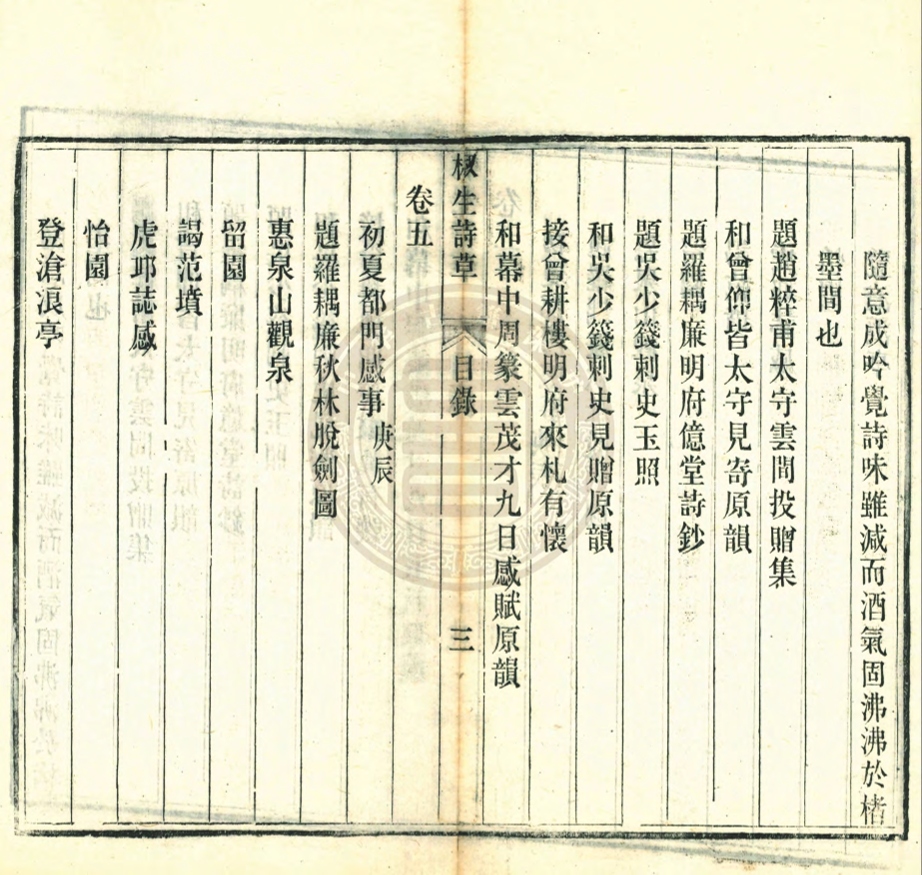 隨意成吟覺詩味雖減而酒氣固沸沸於楮
墨間也
題趙粹甫太守雲間投贈集
和曾仰皆太守見寄原韻
題羅耦廉明府億堂詩鈔
題吳少篯刺史玉照
和吳少篯刺史見贈原韻
接曾耕樓明府來札有懷
和幕中周篆雲茂才九日感賦原韻
椒生詩草 目錄 三
卷五
初夏都門感事 庚辰
題羅耦廉秋林脫劍圖
惠泉山觀泉
留園
謁范墳
虎邱誌感
怡園
登滄浪亭